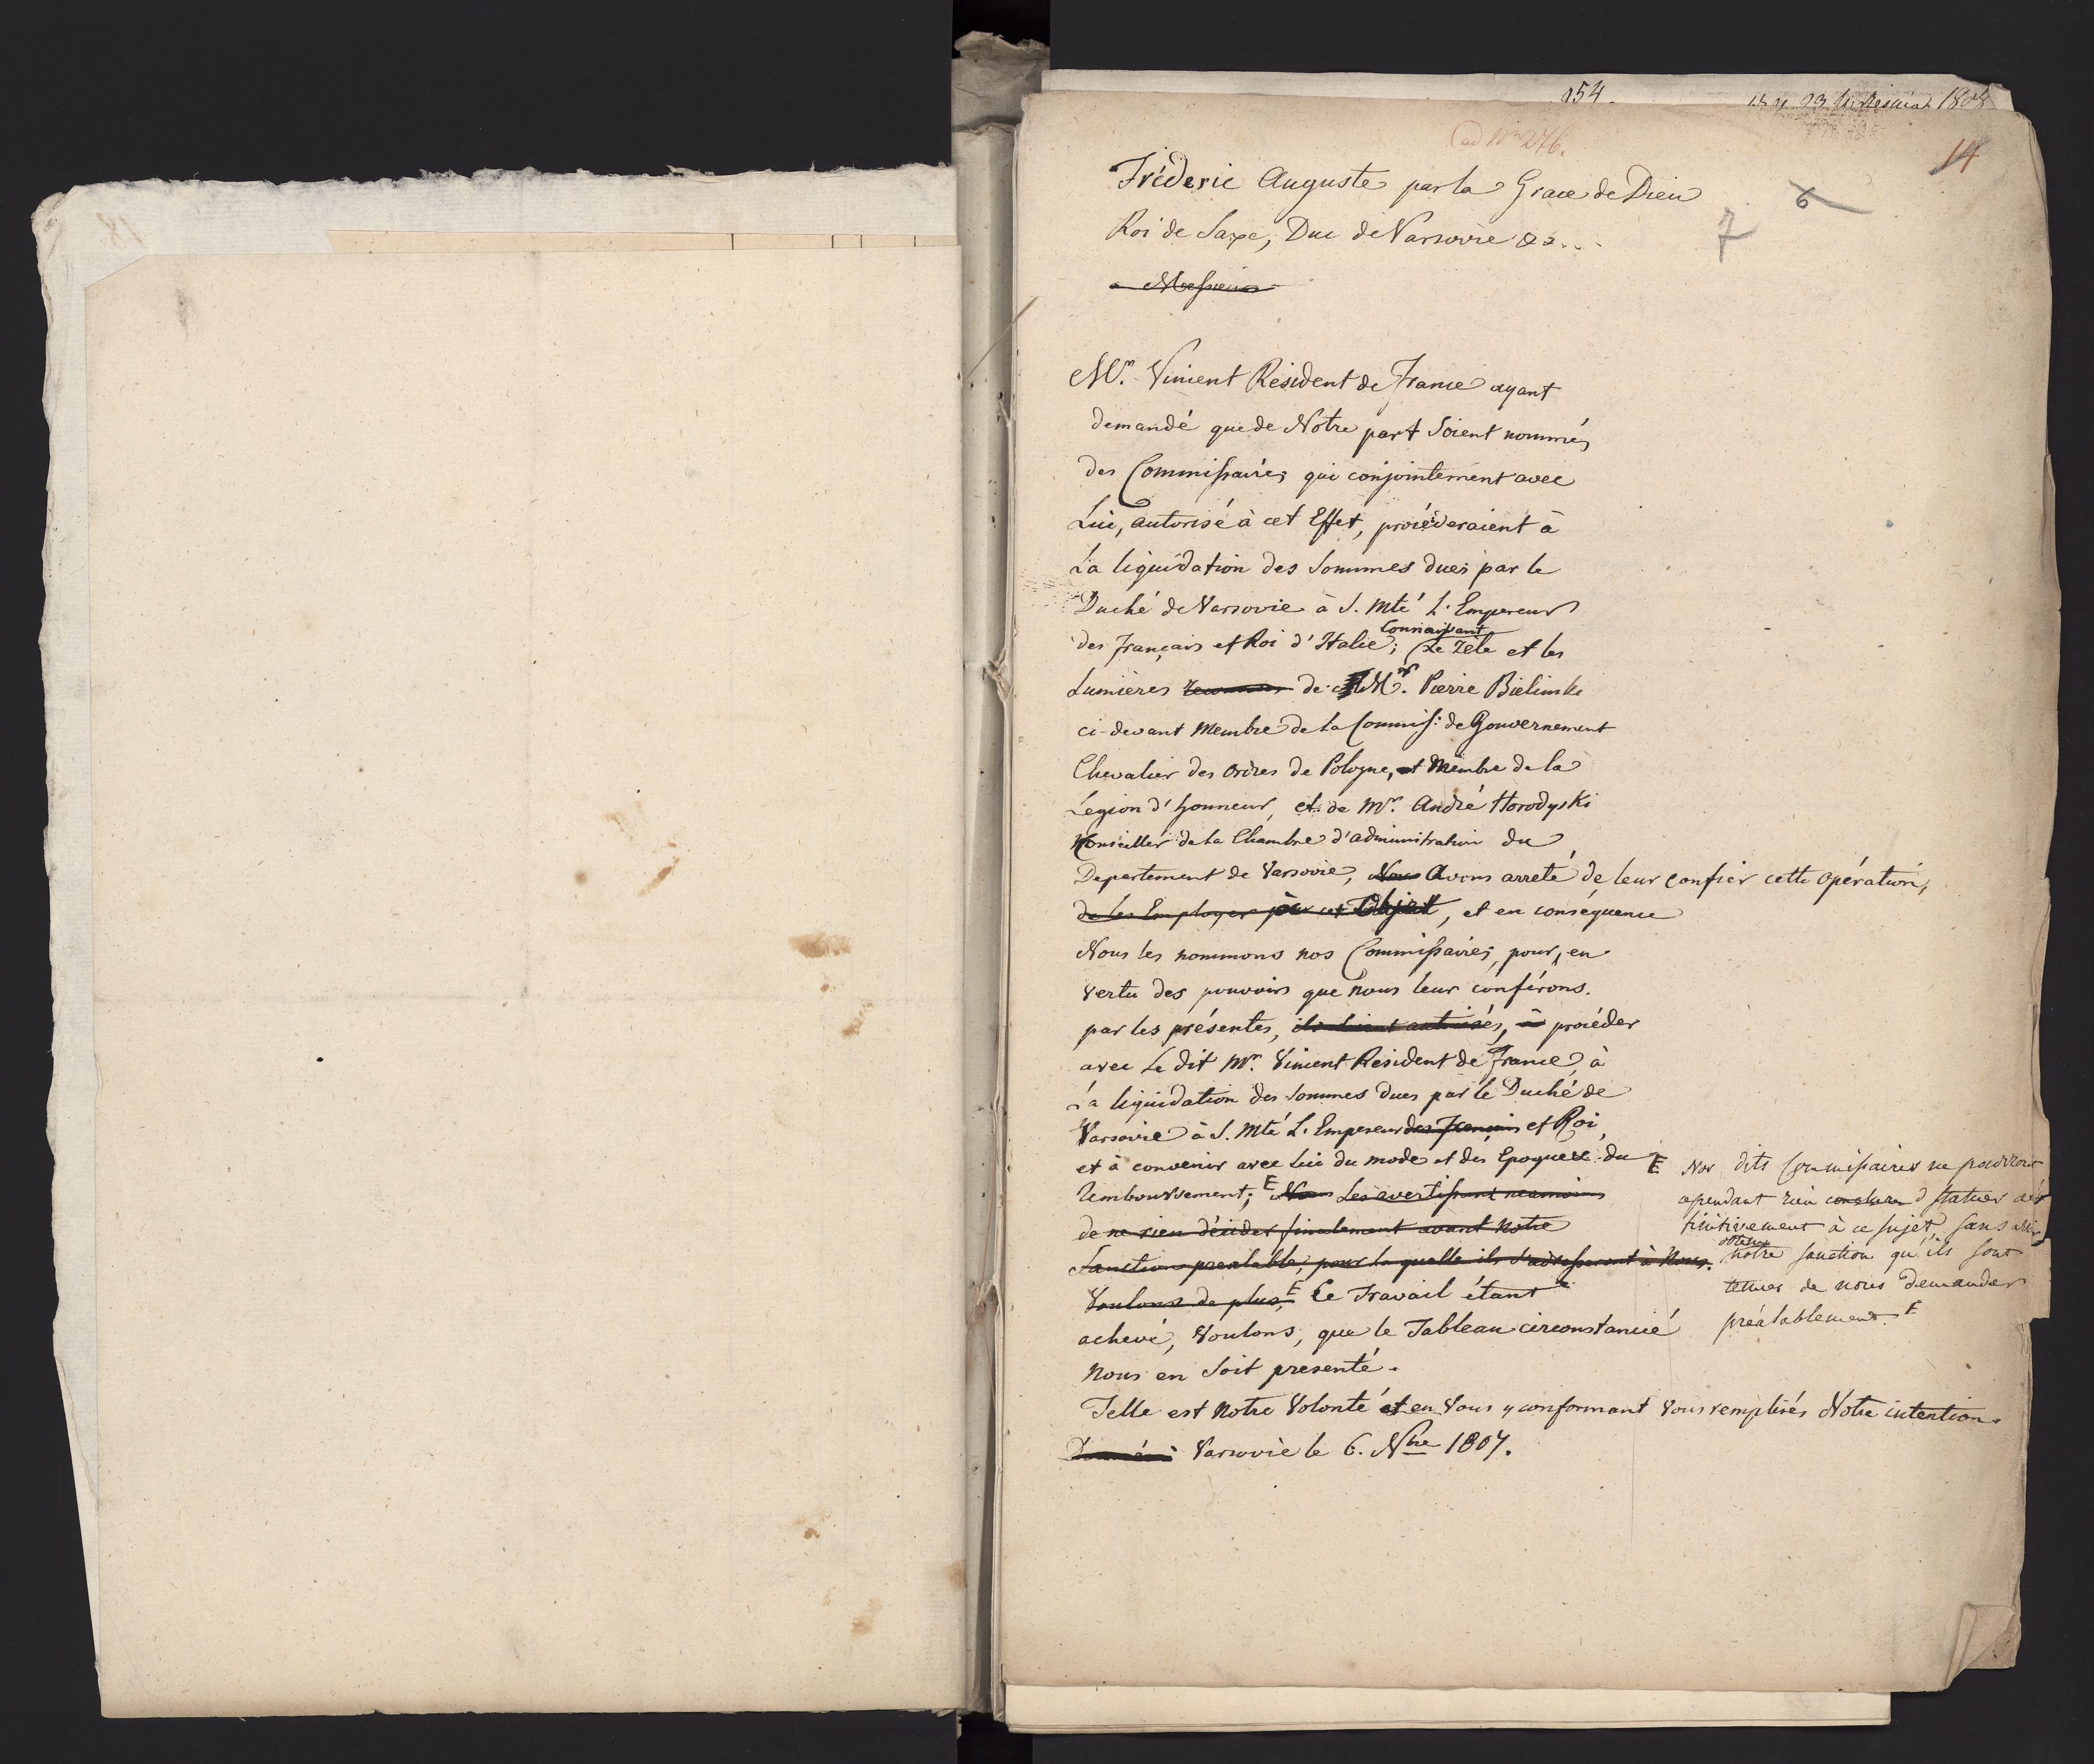 154.
1808
ad Nm 276.
14
6
7
Fréderic Auguste par la Grace de Dieu
Roi de Saxe, Duc de Varsovie &a...
a Messieurs
Mr. Vincent Résident de France ayant
demandé que de Notre part soient nommés
des Commissaires qui conjointement avec
Lui, autorisé à cet Effet, procéderaient à
La liquidation des Sommes dues par le
Duché de Varsovie à S. Mté L'Empereur
des français et Roi d'Italie; Connaissant Le Zèle et les
Lumières reconnues de Mr. Pierre Bielinski
ci-devant Membre de la Commiss: de Gouvernement
Chevalier des Ordres de Pologne, et Membre de la
Légion d'honneur, et de Mr. André Horodyski
Conseiller de la Chambre d'administration du
Departement de Varsovie, Nous Avons arreté de leur confier cette opération,
de les Employer pour cet Objet, et en conséquence
Nous les nommons nos Commissaires, pour, en
vertu des pouvoirs que nous leur conférons.
par les présentes, ils soient autorisés, à procéder
avec Le dit Mr. Vincent Résident de France, à
La liquidation des Sommes dues par le Duché de
Varsovie à S. Mté L'Empereur des français et Roi,
et à convenir avec Lui du mode et des Epoques du
Remboursement; E Nous Les avertissant neanmoins
de ne rien décider finalement avant Notre
Sanction préalable, pour la quelle ils s'adresseront à Nous.
Voulons de plus, E Le Travail étant
achevé, Voulons, que le Tableau circonstancié
nous en soit presenté.
E Nos dits Commissaires ne pourront
cependant rien conclure d statuer défi
finitivement à ce sujet sans avoir
obtenu notre sanction qu'ils sont
tenus de nous demander
préalablement. E
Telle est Notre Volonté et en Vous y conformant Vous remplirés Notre intention.
Donné à Varsovie le 6. Nbre 1807.